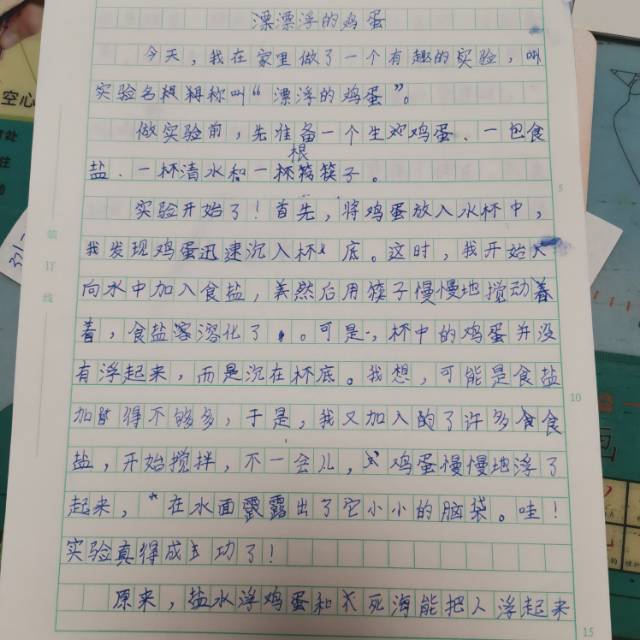 漂漂浮的鸡蛋
今天，我在家里做了一个有趣的实验，叫
实验名称叫“漂浮的鸡蛋”。
做实验前，先准备一个生鸡蛋、一包食
盐、一杯清水和一根筷子。
实验开始了！首先，将鸡蛋放入水杯中，
我发现鸡蛋迅速沉入杯底。这时，我开始
向水中加入食盐，然后用筷子慢慢地搅动着
着，食盐溶化了。可是，杯中的鸡蛋并没
有浮起来，而是沉在杯底。我想，可能是食盐
加得不够多，于是，我又加入了许多食
盐，开始搅拌，不一会儿，鸡蛋慢慢地浮了
起来，在水面露出了它小小的脑袋。哇！
实验真得成功了！
原来，盐水浮鸡蛋和死海能把人浮起来
装
订
线
5
10
15
空心